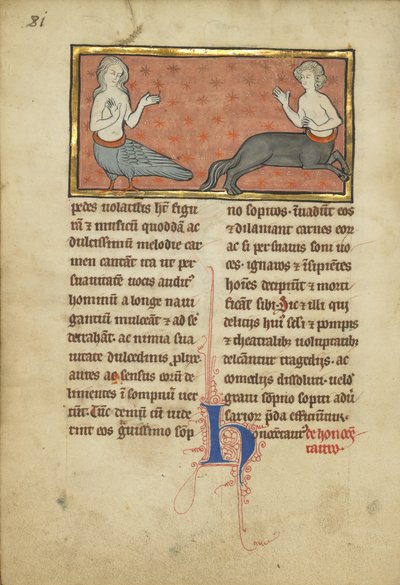 81
pedes uolatilis hn̄t figu
rā & musicū quoddā ac
dulcissimū melodie car
men cantāt ita ut per
suauitatē uocis audit'
hominū a longe naui
gantiū mulceāt & ad se
detrahāt. ac nimia sua
uitate dulcedinis
aures ac sensus eorū de
linientes ī sompnū uer
tūt. Tūc demū cū uide
rint eos gᵃuissimo sōp
no sopitos. īuadūt eos
& dilamant carnes eor
ac si soni uo
ces. ignaros & īsipiētes
hoīes decipiūt & morti
ficāt sibi. Sic & illi qui
deliciis hui' scl̄i & pompis
& theatralib; uoluptatib;
tragediis. ac
comediis dissoluti. uelđ
graui sopno sopiti adū
sarior p̄da efficiuntur.
honocentaur' de honocē
tauro.